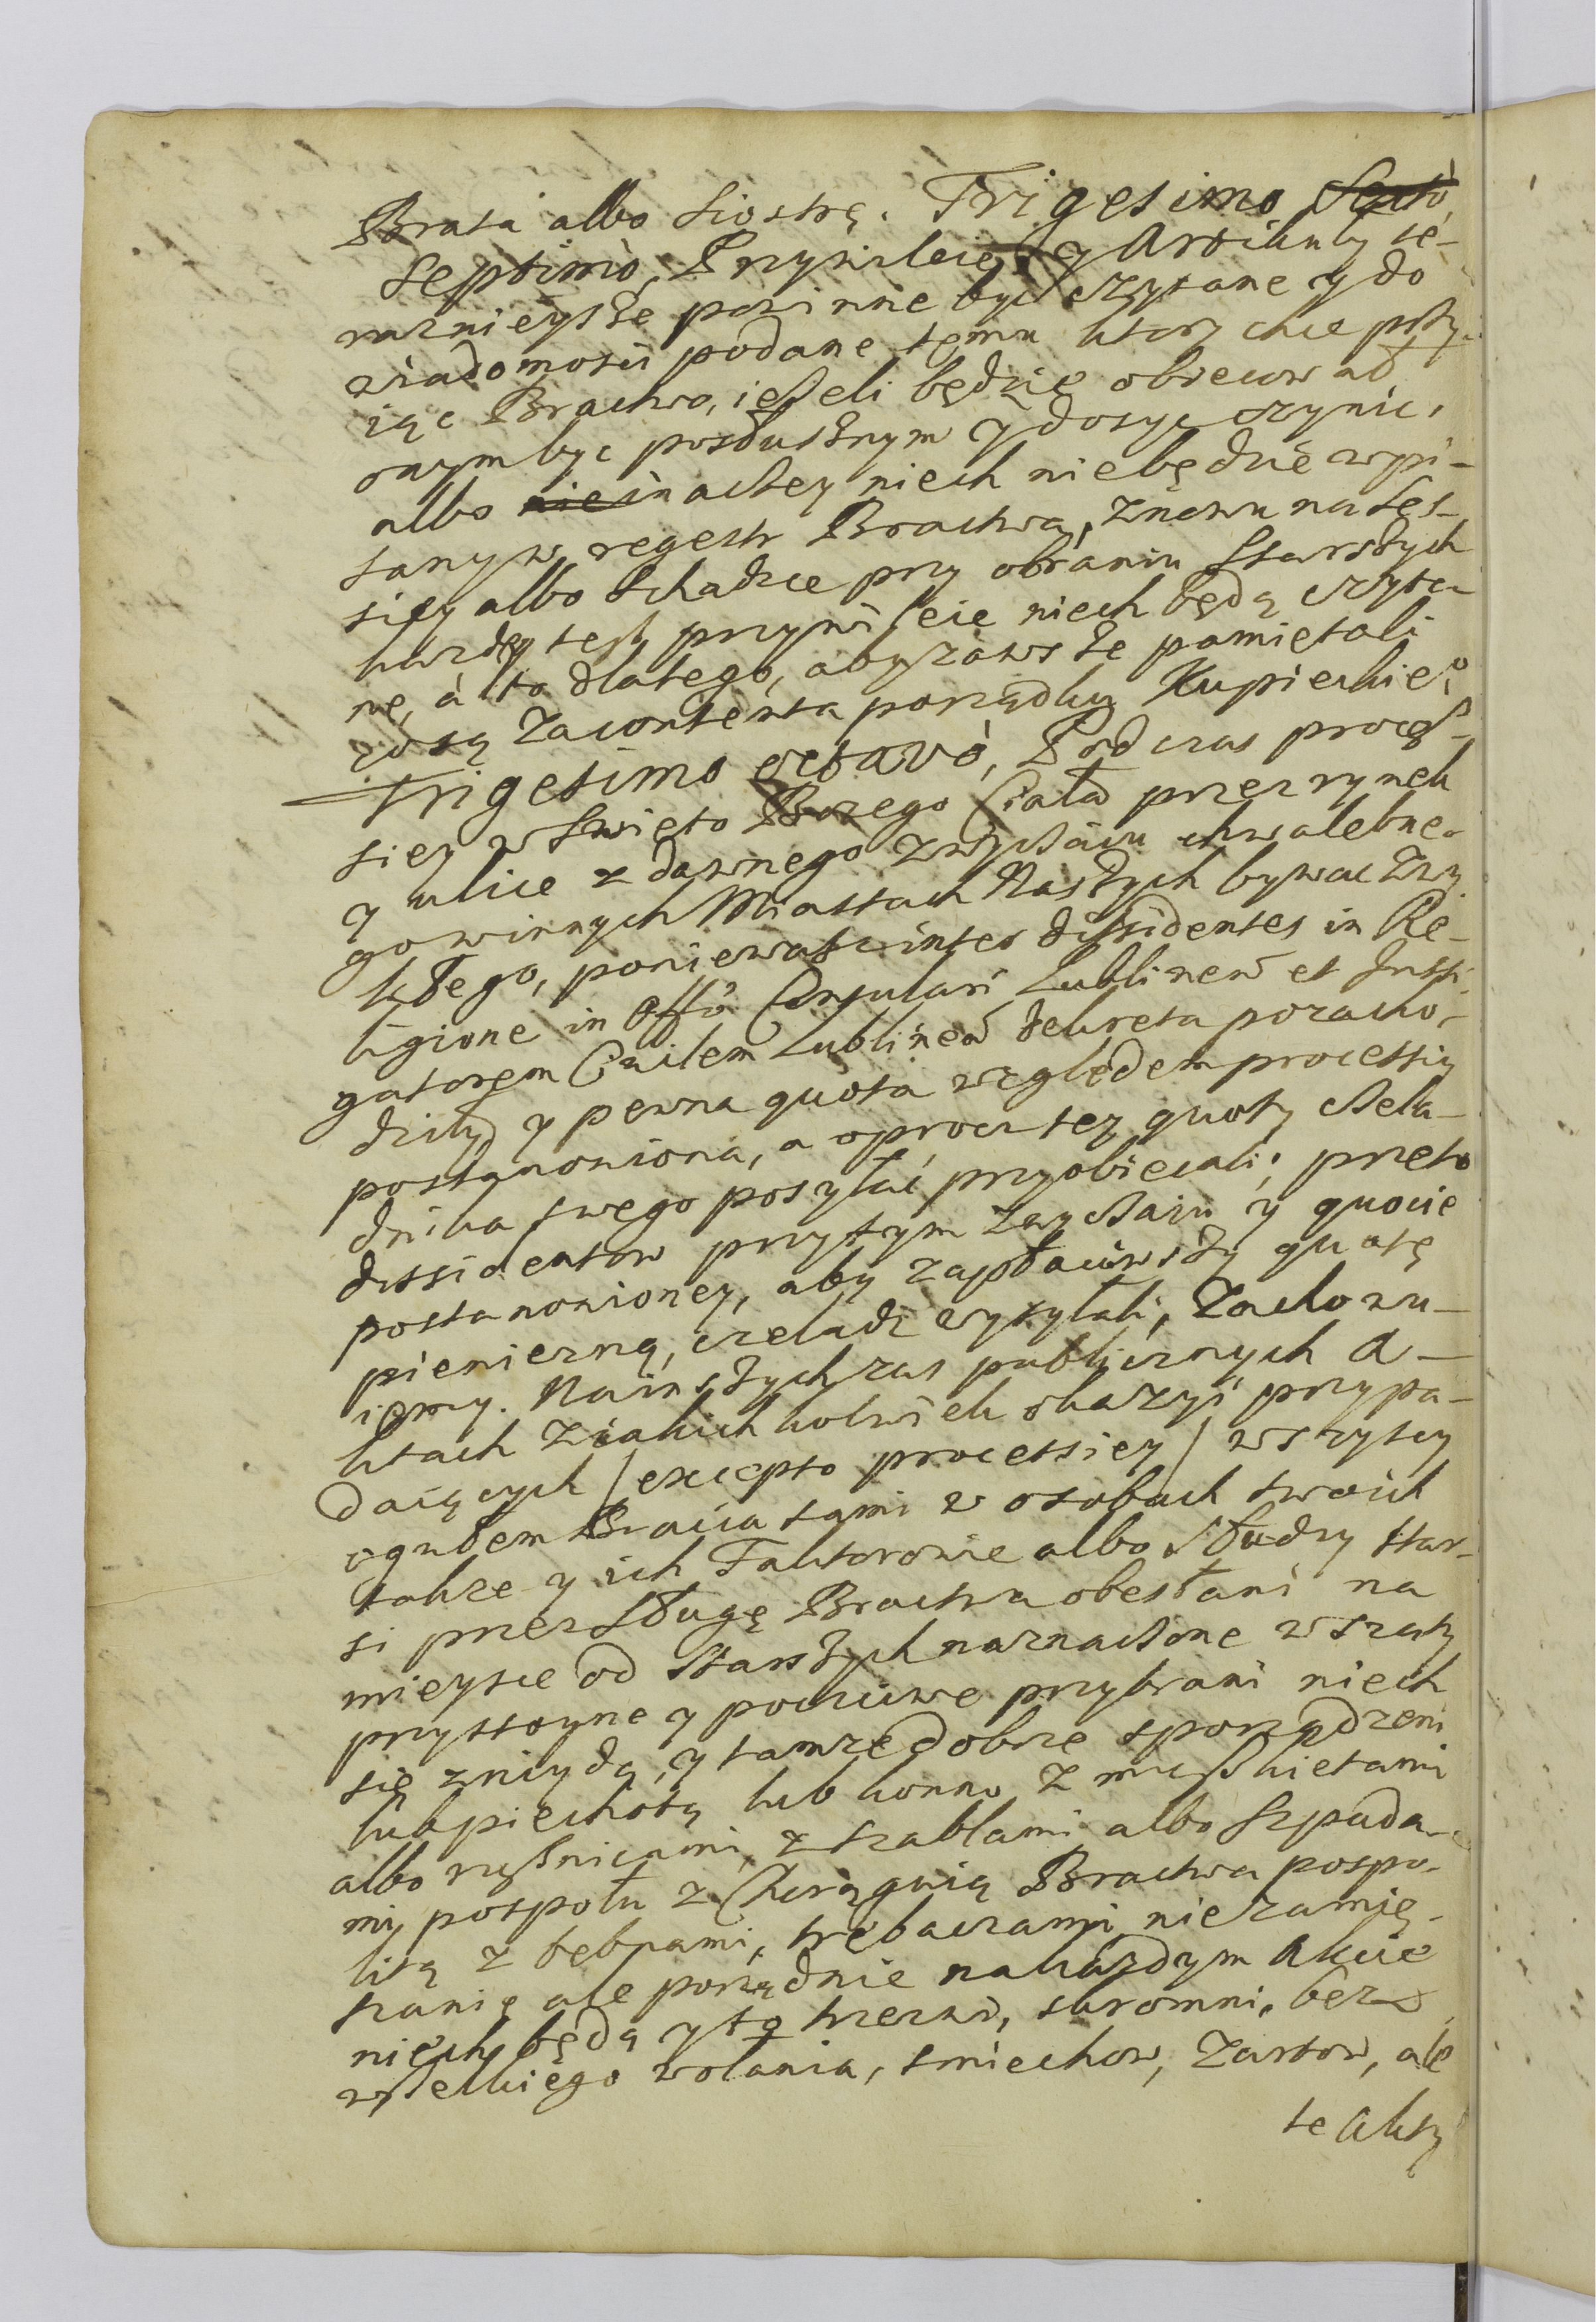 Brata albo Siostrę. Trigesimo Sexto
Septimò, Przywileie, y Artikuły te-
raznieysze powinne być czytane y do
wiadomosci podane temu ktory chce przy-
iąc Bractwo, ieszeli będzie obiecował
onym byc posłusznym y dosyc czynic,
albo nie inaczey niech niebędzie wpi-
sany w regestr Bractwa, znowu na Ses-
siey albo Schadzce przy obraniu Starszych
kazdey tesz przywileie niech będą czyta-
ne, à to dlatego, aby zawsze pamiętali
co są za contenta porządku Kupieckieo
Trigesimo octavò, Podczas procesz-
siey w Swięto Bozego Ciała przez rynek
y ulice z dawnego zwyczaiu chwalebne-
go w innych Miastach Naszych bywac zwy-
kłego, ponieważ inter dissidentes in Re-
ligione in Offo Consulari Lublinen et Insti-
gatorem Cuilem Lublinen dekreta pozacho-
dziły y pewna quota względem processiy
postanowiona, a oprocz tey quoty czela-
dnika swego posyłać przyobiecali; przeto
dissidentow przy tym zwyczaiu y quocie
postanowioney, aby zapłaciwszy quotę
pienierzną, czeladz wysyłali, Zachowu-
iemy. Na inszych zas publicznych A-
ktach z iakich kolwiek okazyi przypa-
daiących /excepto processiey/ wszytcy
ogułem Bracia sami w osobach swoich
takze y ich Faktorowie albo słudzy star-
si przez Sługę Bractwa obesłani na
mieysce od Starszych naznaczone w szaty
przystoyne y poczciwe przybrani niech
się zniydą, y tamze dobrze sporządzeni
lub piechotą lub konno z muszkietami
albo rusznicami, z szablami albo Szpada-
mi, pospołu z Chorągwią Bractwa pospo-
litą z bębnami, trębaczami, niezamię-
szanie ale porządnie na każdym Akcie
niech będą y to trzezwi, skromni, bez
wszelkiego wołania, smiechow, żartow, ale
te Akty